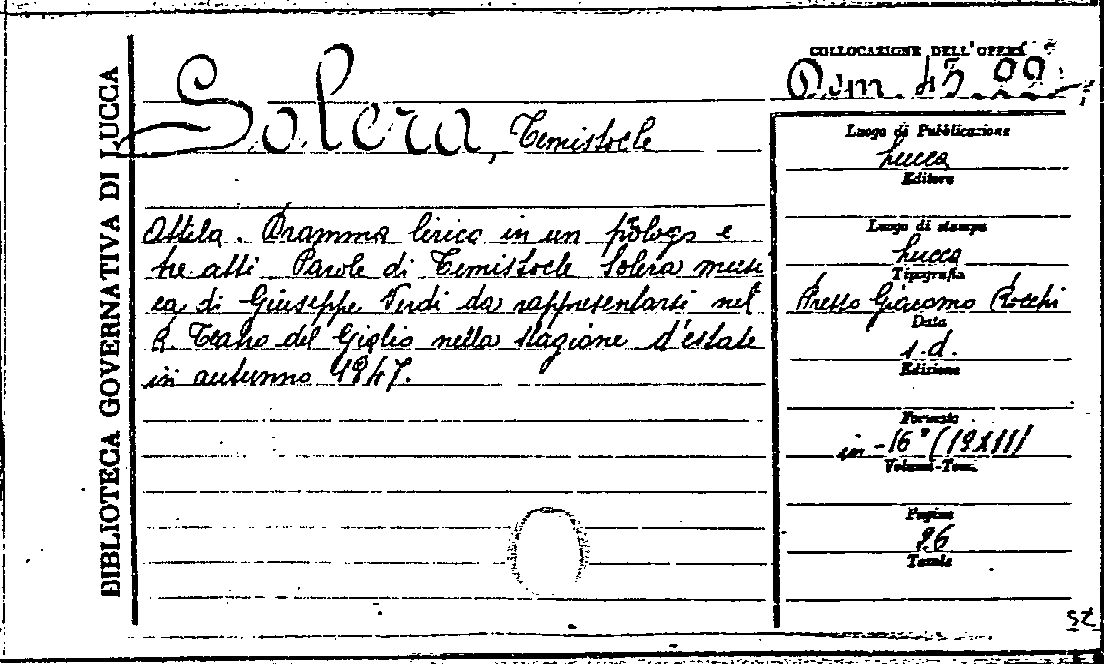 BIBLIOTECA GOVERNATIVA DI LUCCA
COLLOCAZIONE DELL'OPERA
Solera, Temistocle
Attila. Dramma lirico in un prologo e
tre atti Parole di Temistocle Solera musi
ca di Giuseppe Verdi da rappresentarsi nel
R. Teatro del Giglio nella stagione d'estate
in autunno 1847.
Luogo di Pubblicazione
Lucca
Editore
Luogo di stampa
Lucca
Tipografia
Presso Giacomo Rocchi
Data
s.d.
Edizione
Formato
in-16°
Volumi-Tom.
Pagine
Tavole